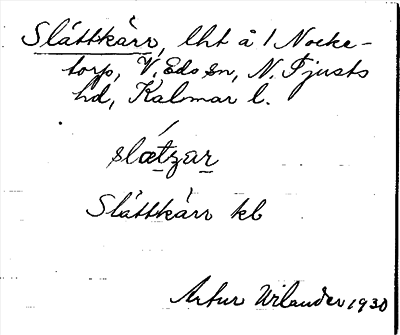 Slåttkärr, lht å 1 Nocke-
torp, V. Eds sn, N. Tjusts
hd, Kalmar l.
slǽtzar
Slåttkärr kb
Artur Wilander 1930